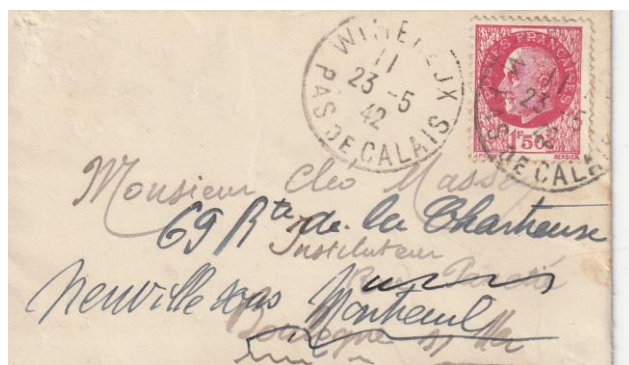 WIMEREUX
11
23 -5
42
PAS DE CALAIS
POSTES FRANÇAISES
11
23 5
42
PAS DE CALAIS
1F50
Monsieur Cléo Massé
69 Rte de la Chartreuse
Instituteur
Neuville sous Montreuil
Boulogne s/ Mer